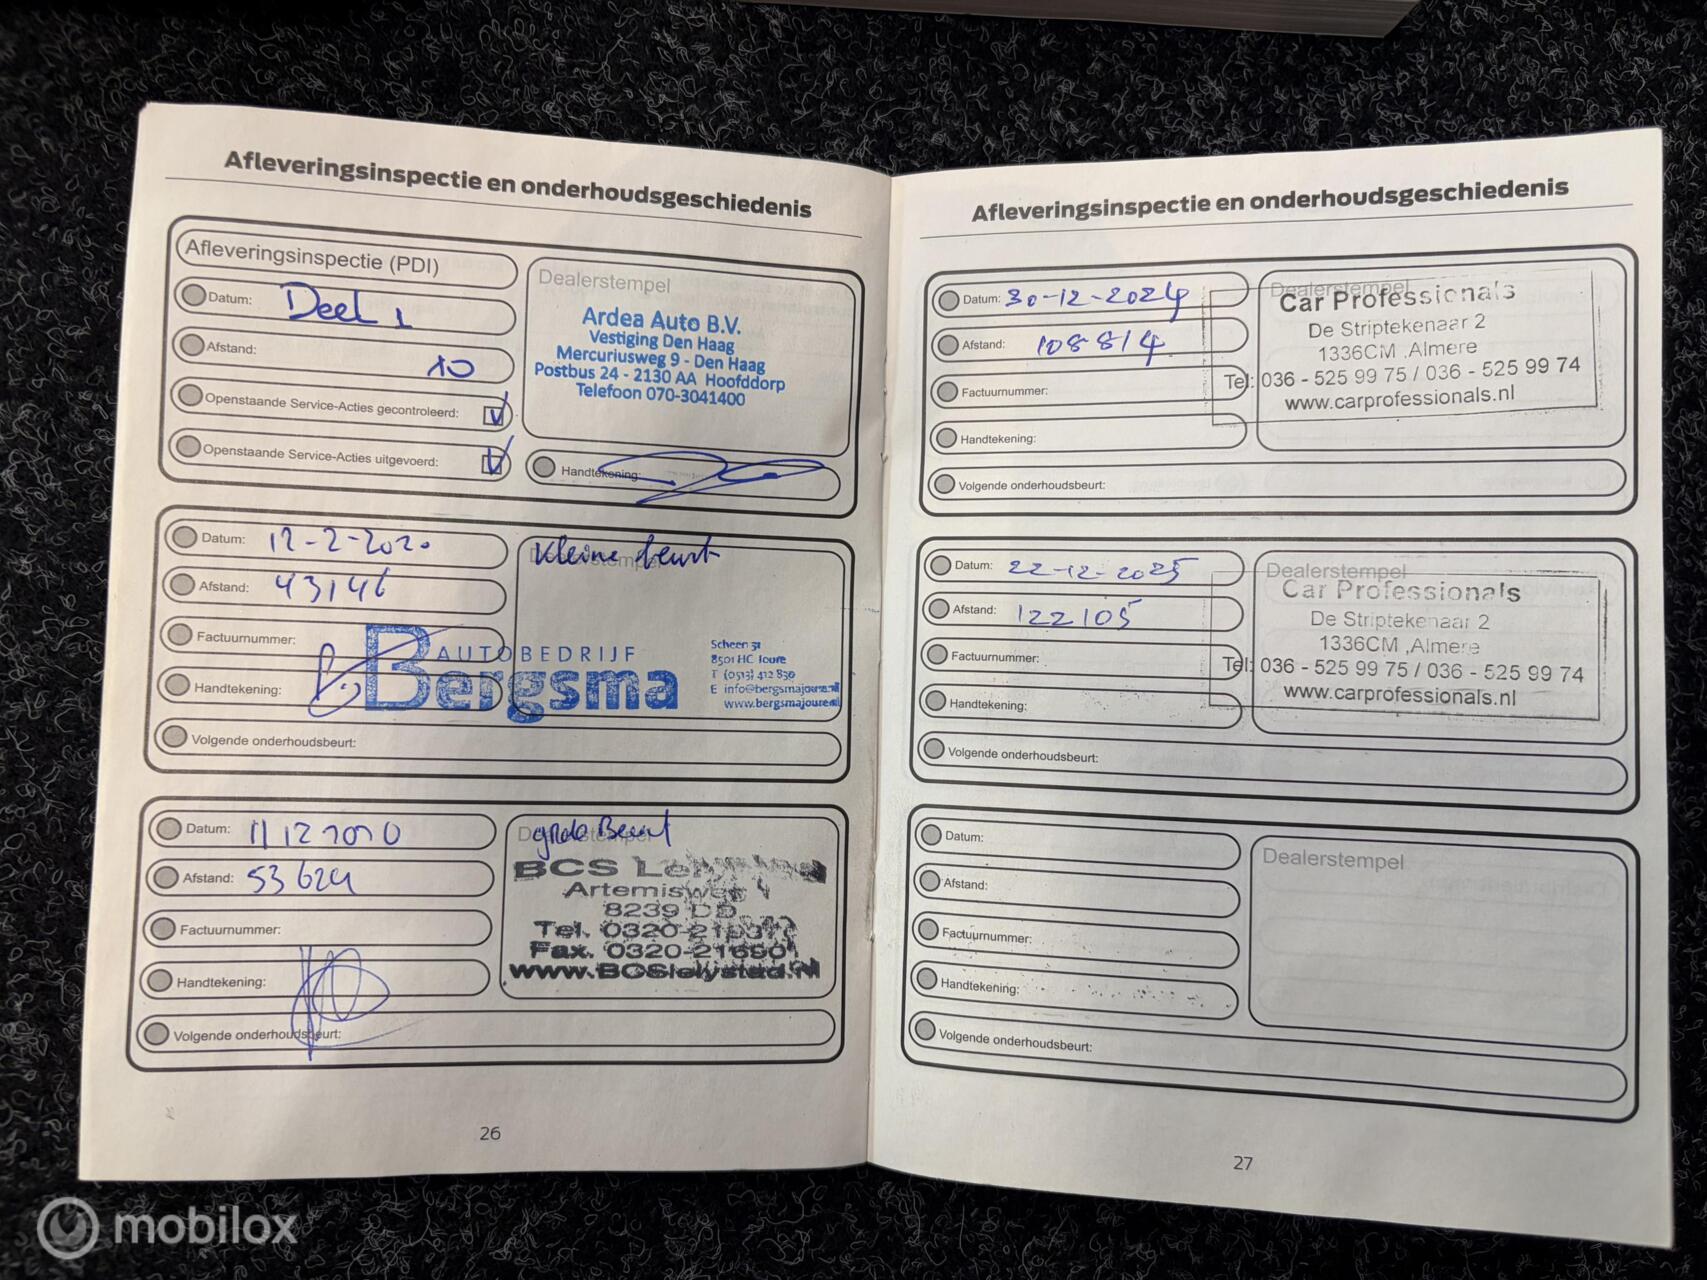 Afleveringsinspectie en onderhoudsgeschiedenis
Afleveringsinspectie (PDI)
Datum: Deel 1
Afstand: 10
Openstaande Service-Acties gecontroleerd:
Openstaande Service-Acties uitgevoerd:
Dealerstempel
Ardea Auto B.V.
Vestiging Den Haag
Mercuriusweg 9 - Den Haag
Postbus 24 - 2130 AA Hoofddorp
Telefoon 070-3041400
Handtekening:
Datum: 12-2-2020
Afstand: 43146
Factuurnummer:
Handtekening:
Volgende onderhoudsbeurt:
Dealerstempel
Kleine beurt
AUTOBEDRIJF
Bergsma
Scheen 31
8501 HC Joure
T (0513) 412 830
E info@bergsmajoure.nl
www.bergsmajoure.nl
Datum: 11 12 2020
Afstand: 53624
Factuurnummer:
Handtekening:
Volgende onderhoudsbeurt:
Dealerstempel
grote Beurt
BCS Lelystad
Artemisweg
8239 DD
Tel. 0320-
Fax. 0320-
www.BCSlelystad.nl
26
Afleveringsinspectie en onderhoudsgeschiedenis
Datum: 30-12-2024
Afstand: 108814
Factuurnummer:
Handtekening:
Volgende onderhoudsbeurt:
Dealerstempel
Car Professionals
De Striptekenaar 2
1336CM ,Almere
Tel: 036 - 525 99 75 / 036 - 525 99 74
www.carprofessionals.nl
Datum: 22-12-2025
Afstand: 122105
Factuurnummer:
Handtekening:
Volgende onderhoudsbeurt:
Dealerstempel
Car Professionals
De Striptekenaar 2
1336CM ,Almere
Tel: 036 - 525 99 75 / 036 - 525 99 74
www.carprofessionals.nl
Datum:
Afstand:
Factuurnummer:
Handtekening:
Volgende onderhoudsbeurt:
Dealerstempel
27
mobilox